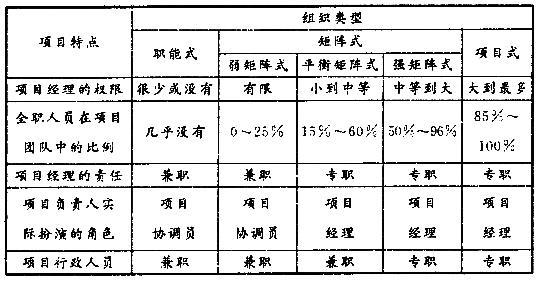 组织类型
项目特点
职能式
矩阵式
项目式
弱矩阵式
平衡矩阵式
强矩阵式
项目经理的权限 很少或没有 有限 小到中等 中等到大 大到最多
全职人员在项目
团队中的比例
几乎没有 0～25% 15%～60% 50%～96%
85%～
100%
项目经理的责任 兼职 兼职 专职 专职 专职
项目负责人实 项目 项目 项目 项目 项目
际扮演的角色 协调员 协调员 经理 经理 经理
项目行政人员 兼职 兼职 兼职 专职 专职